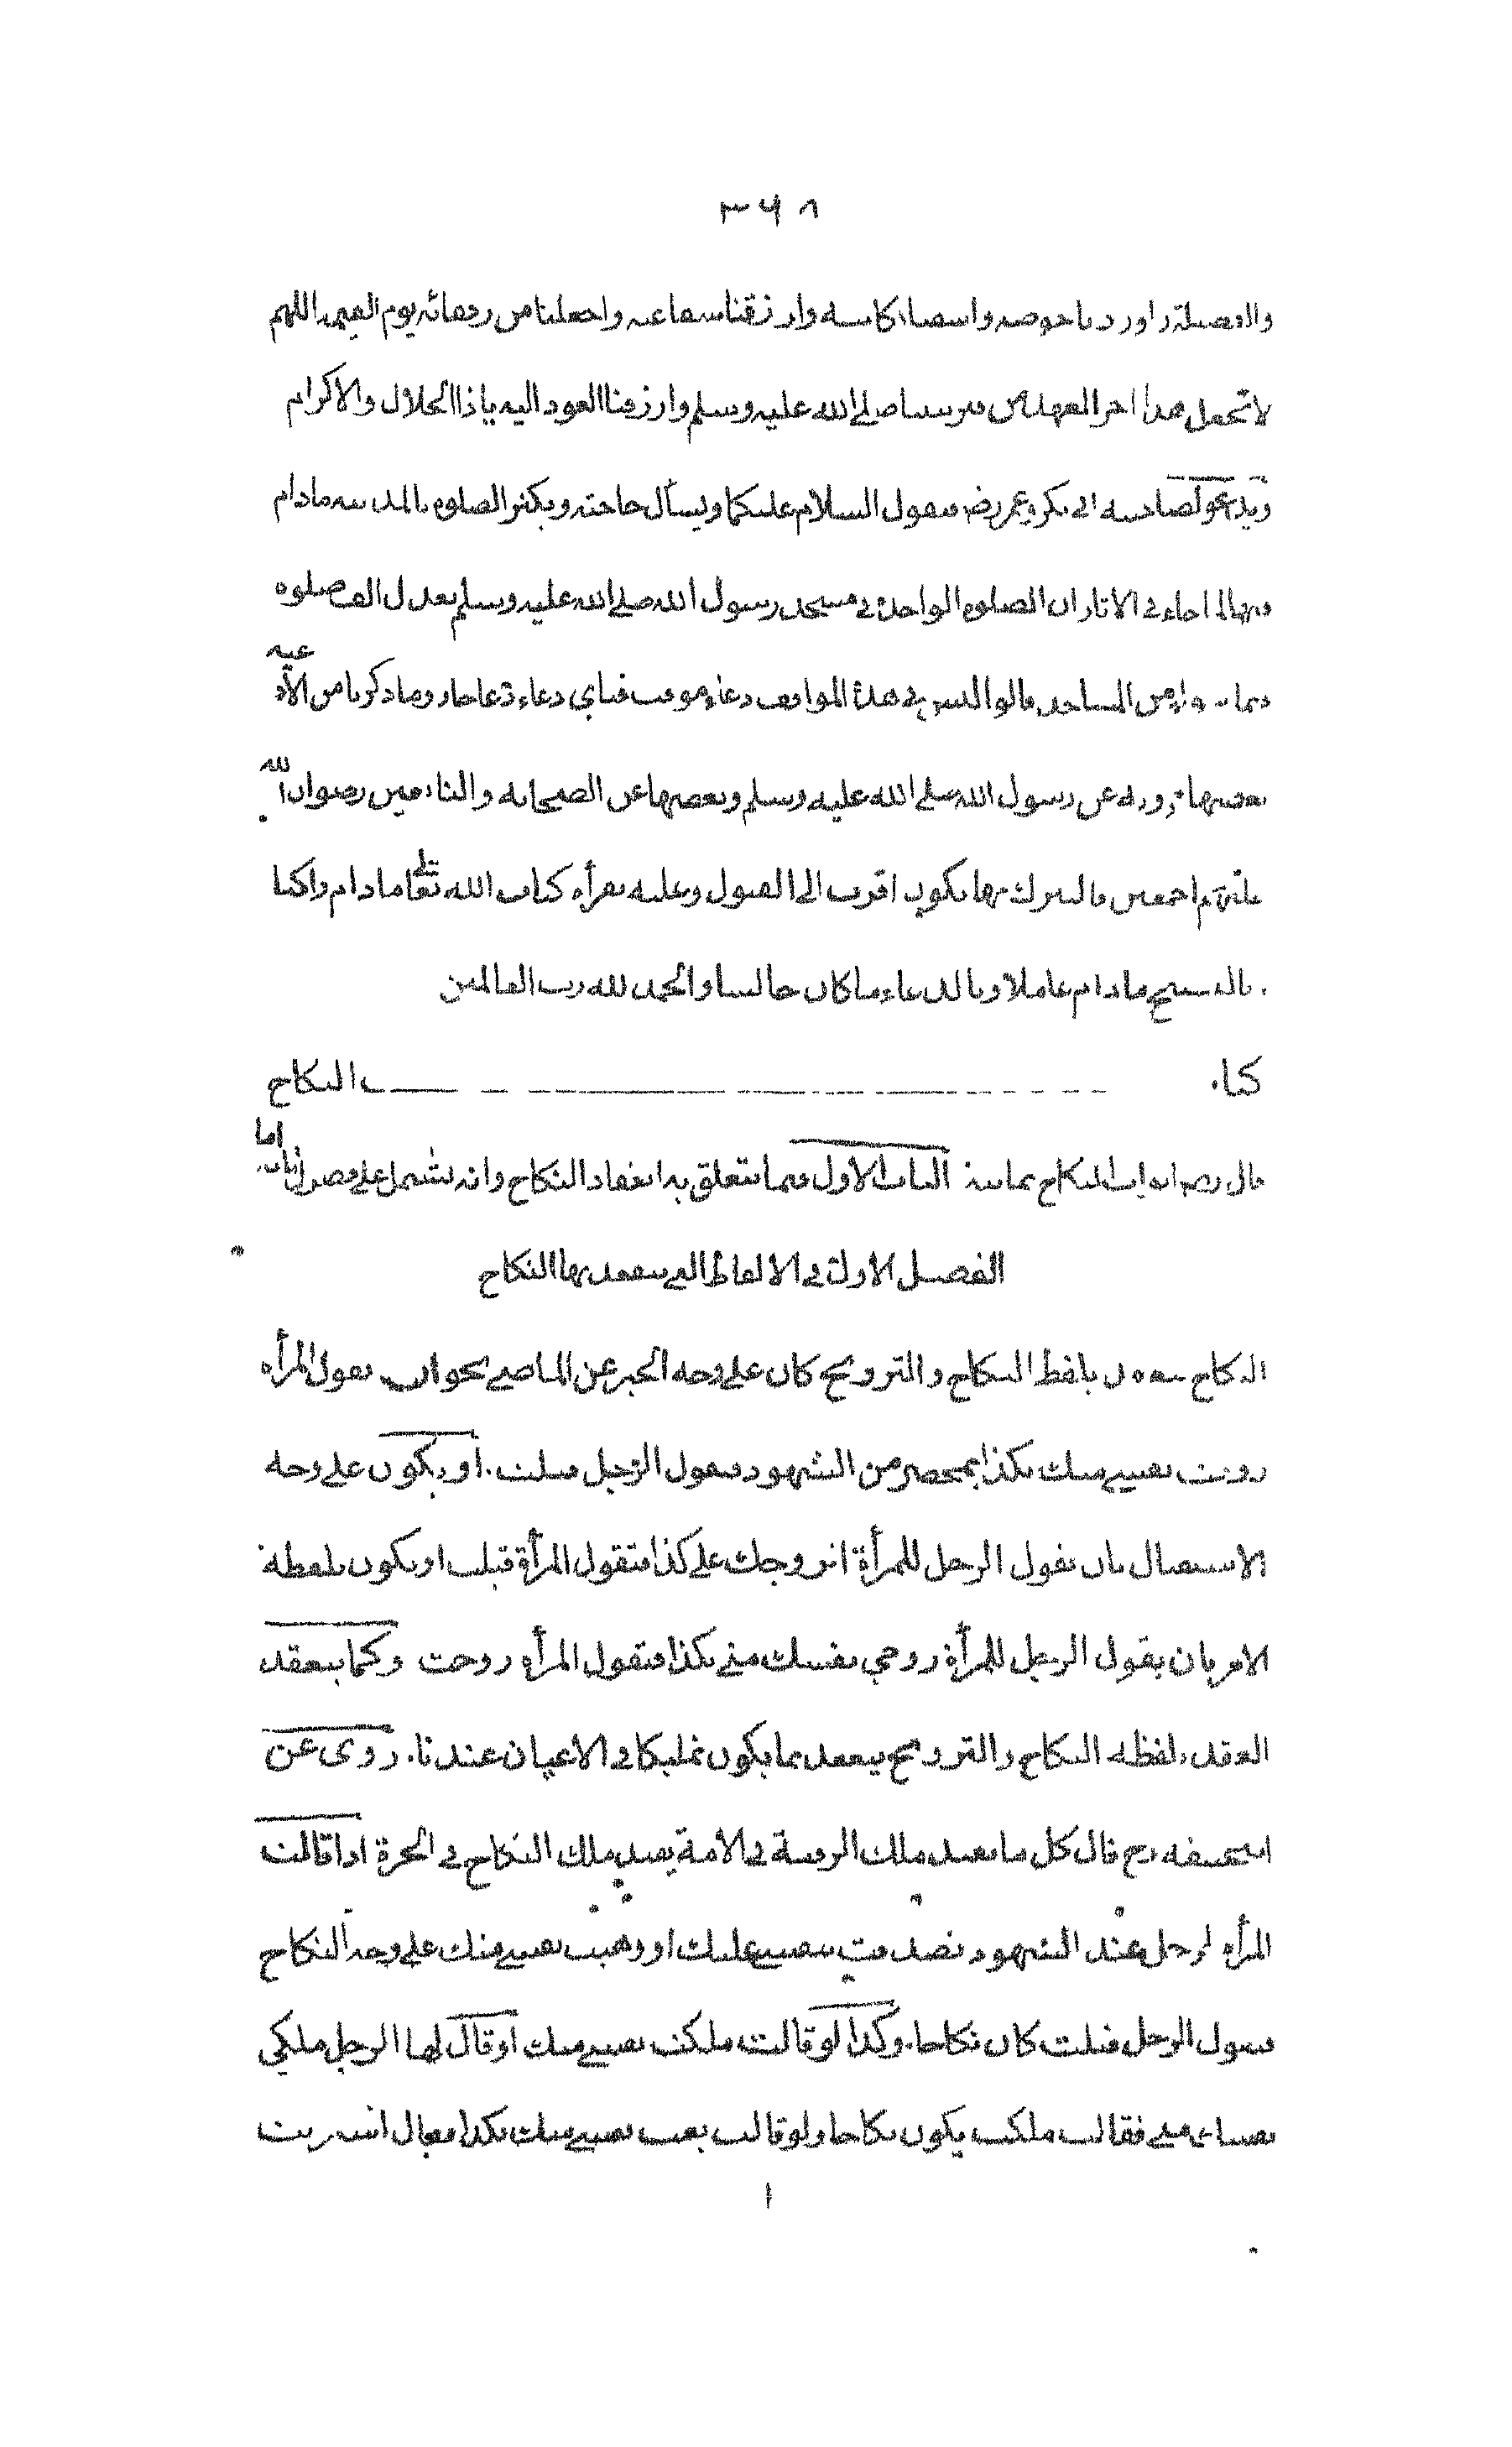 ٣٦٨
والفضيلة واوردنا حوضه واسقنا بكاسه وارزقنا شفاعته واجعلنا من رفقائه يوم القيمة اللهم
لا تجعل هذا اخر العهد من قبر نبينا صلى الله عليه وسلم وارزقنا العود اليه ياذا الجلال والاكرام
ويدعو لصاحبيه ابي بكر وعمر رض فيقول السلام عليكما ويسأل حاجته ويكثر الصلوة بالمدينة مادام
فيها لما جاء في الاثار ان الصلوة الواحدة في مسجد رسول الله صلى الله عليه وسلم يعدل الف صلوة
فيما سواه من المساجد قالوا ليس في هذه المواقف دعاء موقت فباي دعاء دعا جاز وما ذكرنا من الادعية
بعضها مروية عن رسول الله صلى الله عليه وسلم وبعضها عن الصحابة والتابعين رضوان الله
عليهم اجمعين فالتبرك بها يكون اقرب الى القبول وعليه بقرأة كتاب الله تعالى ما دام راكبا
بالتسبيح مادام عاملا وبالدعاء ما كان جالسا والحمد لله رب العالمين
كتاب النكاح
قال رضي ابواب النكاح ثمانية الباب الاول فيما يتعلق به انعقاد النكاح وانه يشتمل على فصول اما
الفصل الاول في الالفاظ التي ينعقد بها النكاح
النكاح ينعقد بلفظ النكاح والتزويج كان على وجه الخبر عن الماضي نحو ان يقول المرأة
زوجت نفسي منك بكذا بمحضر من الشهود فيقول الرجل قبلت. او يكون على وجه
الاستقبال بان يقول الرجل للمرأة اتزوجك على كذا فتقول المرأة قبلت او يكون بلفظة
الامر بان يقول الرجل للمرأة زوجي نفسك مني بكذا فتقول المرأة زوجت وكما ينعقد
العقد بلفظه النكاح والتزويج ينعقد بما يكون تمليكا في الاعيان عندنا. روى عن
ابي حنيفه رح قال كل ما يفيد ملك الرقبة في الامة يفيد ملك النكاح في الحرة اذا قالت
المرأة لرجل عند الشهود تصدقت بنفسي عليك او وهبت نفسي منك على وجه النكاح
فيقول الرجل قبلت كان نكاحا. وكذا لو قالت ملكت نفسي منك او قال لها الرجل ملكي
نفسك مني فقالت ملكت يكون نكاحا ولو قالت بعت نفسي منك بكذا فقال اشتريت